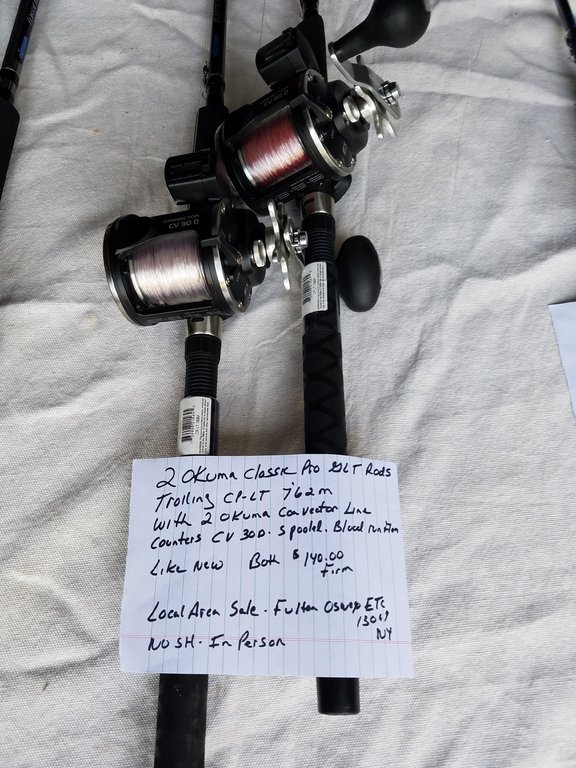 CV 30 D
CV 30 D
2 Okuma Classic Pro GLT Rods
Trolling CP-LT 762m
With 2 Okuma Convector Line
Counters CV 30D. Spooled.
Like New Both $140.00
Firm
Local Area Sale. Fulton Oswego ETC
13069
NO SH. In Person NY